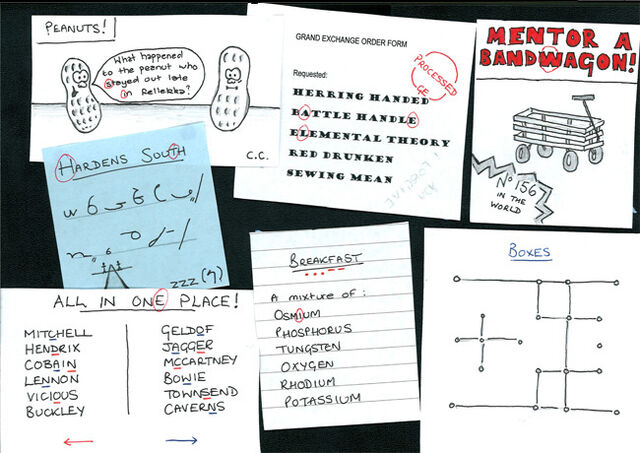 PEANUTS!
What happened
to the peanut who
stayed out late
in Rellekka?
C.C.
GRAND EXCHANGE ORDER FORM
Requested:
HERRING HANDED
BATTLE HANDLE
ELEMENTAL THEORY
RED DRUNKEN
SEWING MEAN
PROCESSED
GE
MENTOR A
BANDWAGON!
Nº 156
IN THE
WORLD
HARDENS SOUTH
zzz
BREAKFAST
A mixture of:
OSMIUM
PHOSPHORUS
TUNGSTEN
OXYGEN
RHODIUM
POTASSIUM
BOXES
ALL IN ONE PLACE!
MITCHELL
HENDRIX
COBAIN
LENNON
VICIOUS
BUCKLEY
GELDOF
JAGGER
MCCARTNEY
BOWIE
TOWNSEND
CAVERNS